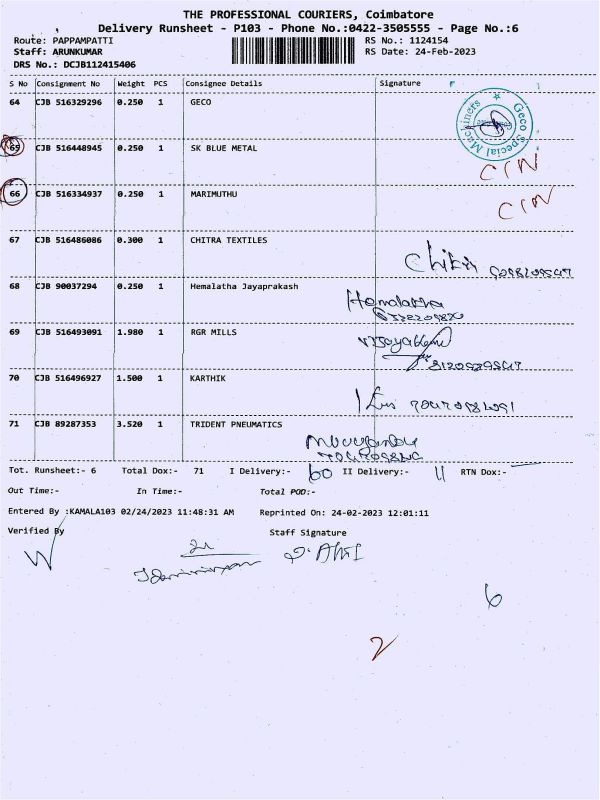 THE PROFESSIONAL COURIERS, Coimbatore
Delivery Runsheet - P103 - Phone No.:0422-3505555 - Page No.:6
Route: PAPPAMPATTI RS No.: 1124154
Staff: ARUNKUMAR RS Date: 24-Feb-2023
DRS No.: DCJB112415406
S No Consignment No Weight PCS Consignee Details Signature
64 CJB 516329296 0.250 1 GECO
Geco Special Machiners
65 CJB 516448945 0.250 1 SK BLUE METAL
CIN
66 CJB 516334937 0.250 1 MARIMUTHU
CIN
67 CJB 516486086 0.300 1 CHITRA TEXTILES
68 CJB 90037294 0.250 1 Hemalatha Jayaprakash
Hemalatha
69 CJB 516493091 1.980 1 RGR MILLS
70 CJB 516496927 1.500 1 KARTHIK
71 CJB 89287353 3.520 1 TRIDENT PNEUMATICS
Tot. Runsheet:- 6 Total Dox:- 71 I Delivery:- 60 II Delivery:- 11 RTN Dox:-
Out Time:- In Time:- Total POD:-
Entered By :KAMALA103 02/24/2023 11:48:31 AM Reprinted On: 24-02-2023 12:01:11
Verified By Staff Signature
6
2